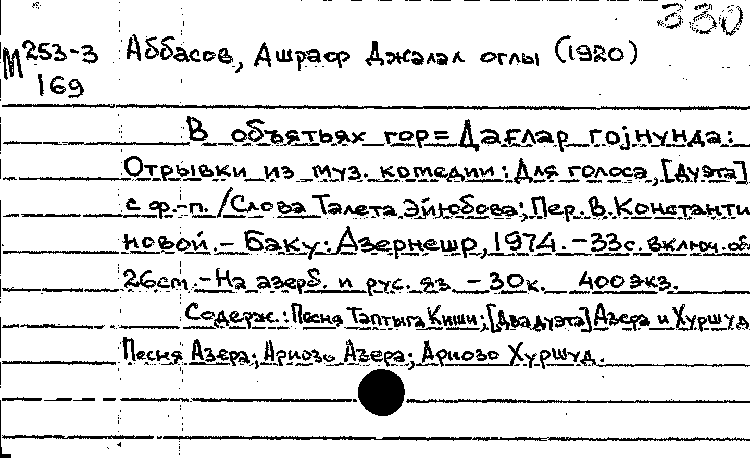 330
М 253-3 Аббасов, Ашраф Джалал оглы (1920)
169
В объятьях гор = Дағлар гојнунда:
Отрывки из муз. комедии: Для голоса, [дуэта]
с ф.-п. / Слова Талета Эйюбова; Пер. В. Константи
новой. – Баку: Азернешр, 1974. – 33с. включ. об
26cm. – На азерб. и рус. яз. – 30к. 400 экз.
Содерж.: Песня Таптыга Киши; [Два дуэта] Азера и Хуршуд
Песня Азера; Ариозо Азера; Ариозо Хуршуд.